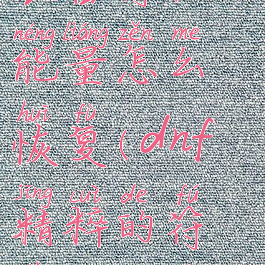 néng liàng zěn me
能量怎么
huī fù
恢复(dnf
jīng cuì de fú
精粹的符